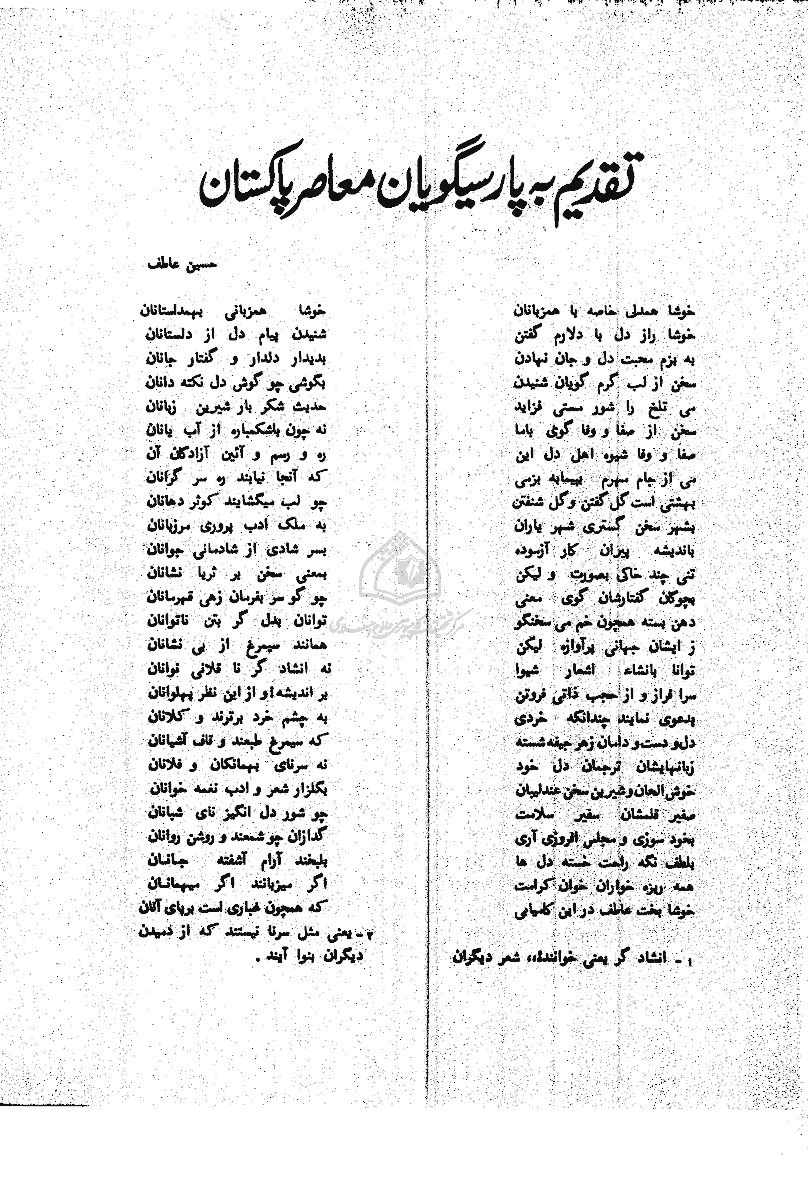 تقدیم به پارسیگویان معاصر پاکستان
حسین عاطف
خوشا همدلی خاصه با همزبانان
خوشا همزبانی بهمداستانان
خوشا راز دل با دلارم گفتن
شنیدن پیام دل از دلستانان
به بزم محبت دل و جان نهادن
بدیدار دلدار و گفتار جانان
سخن از لب گرم گویان شنیدن
بگوشی چو گوش دل نکته دانان
می تلخ را شور مستی فزاید
حدیث شکر بار شیرین زبانان
سخن از صفا و وفا گوی باما
نه چون باشکمباره از آب یانان
صفا و وفا شیوه اهل دل این
ره و رسم و آئین آزادگان آن
می از جام مهرم بپیمابه بزمی
که آنجا نیابند ره سر گرانان
بهشتی است گل گفتن و گل شنفتن
چو لب میگشایند کوثر دهانان
بشهر سخن گستری شهر یاران
به ملک ادب پروری مرزبانان
باندیشه پیران کار آزموده
بسر شادی از شادمانی جوانان
تنی چند خاکی بصورت و لیکن
بمعنی سخن بر ثریا نشانان
بچوکان گفتارشان گوی معنی
چو گو سر بفرمان زهی قهرمانان
دهن بسته همچون خم می سخنگو
توانان بدل گر بتن ناتوانان
ز ایشان جهانی پرآوازه لیکن
همانند سیمرغ از بی نشانان
توانا بانشاء اشعار شیوا
نه انشاد گر تا فلانی نوانان
سرا فراز و از حجب ذاتی فروتن
بر اندیشه‌۱ و از این نظر پهلوانان
بدعوی نمایند چندانکه خردی
به چشم خرد برترند و کلانان
دل و دست و دامان زهر جیفه شسته
که سیمرغ طبعند و قاف آشیانان
زبانهایشان ترجمان دل خود
نه سرنای بهمانکان و فلانان
خوش الحان و شیرین سخن عندلیبان
بگلزار شعر و ادب نغمه خوانان
صفیر قلمشان سفیر سلامت
چو شور دل انگیز نای شبانان
بخود سوزی و مجلس افروزی آری
گدازان چو شمعند و روشن روانان
بلطف نگه راحت خسته دل ها
بلبخند آرام آشفته جانان
همه ریزه خواران خوان کرامت
اگر میزبانند اگر میهمانان
خوشا بخت عاطف در این کامیابی
که همچون غباری است برپای آنان
۱ - انشاد گر یعنی خوانندهٔ،، شعر دیگران
۲ - یعنی مثل سرنا نیستند که از دمیدن
دیگران بنوا آیند .